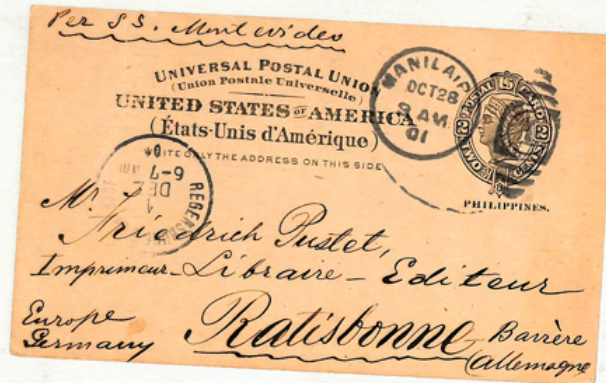 Per SS. Montevideo
UNIVERSAL POSTAL UNION
(Union Postale Universelle)
UNITED STATES OF AMERICA
(États-Unis d'Amérique)
WRITE ONLY THE ADDRESS ON THIS SIDE
MANILA, P.I.
OCT 28
9 AM
01
POSTAL CARD
TWO CENTS
PHILIPPINES.
REGENSBURG
1
DEZ
6-7 AM
Mr. Friedrich Pustet,
Imprimeur-Libraire-Editeur
Ratisbonne Bavière
(Allemagne
Europe
Germany